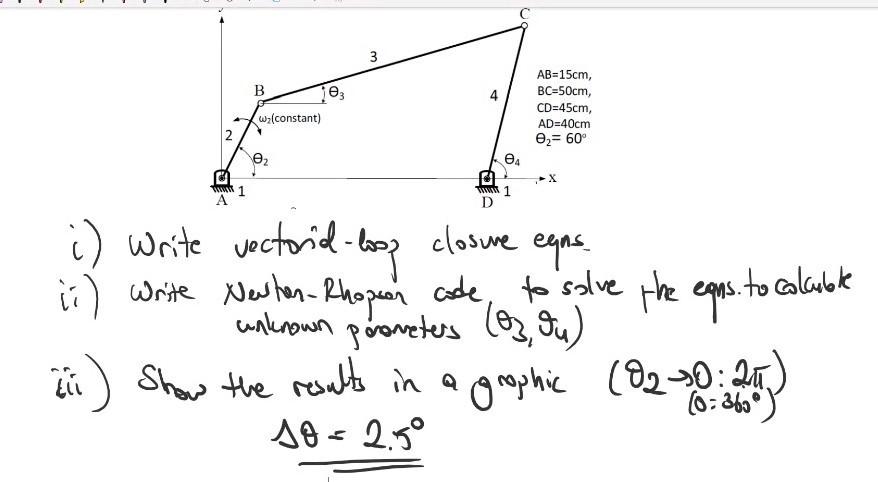 C
3
AB=15cm,
B
θ3
4
BC=50cm,
CD=45cm,
ω2(constant)
AD=40cm
2
θ2= 60°
θ2
θ4
x
1
1
A
D
i) Write vectorial-loop closure eqns.
ii) Write Newton-Rhopson code, to solve the eqns. to calculate
unknown parameters (θ3, θ4)
iii) Show the results in a graphic (θ2→0:2π)
(0=360°)
Δθ = 2.5°